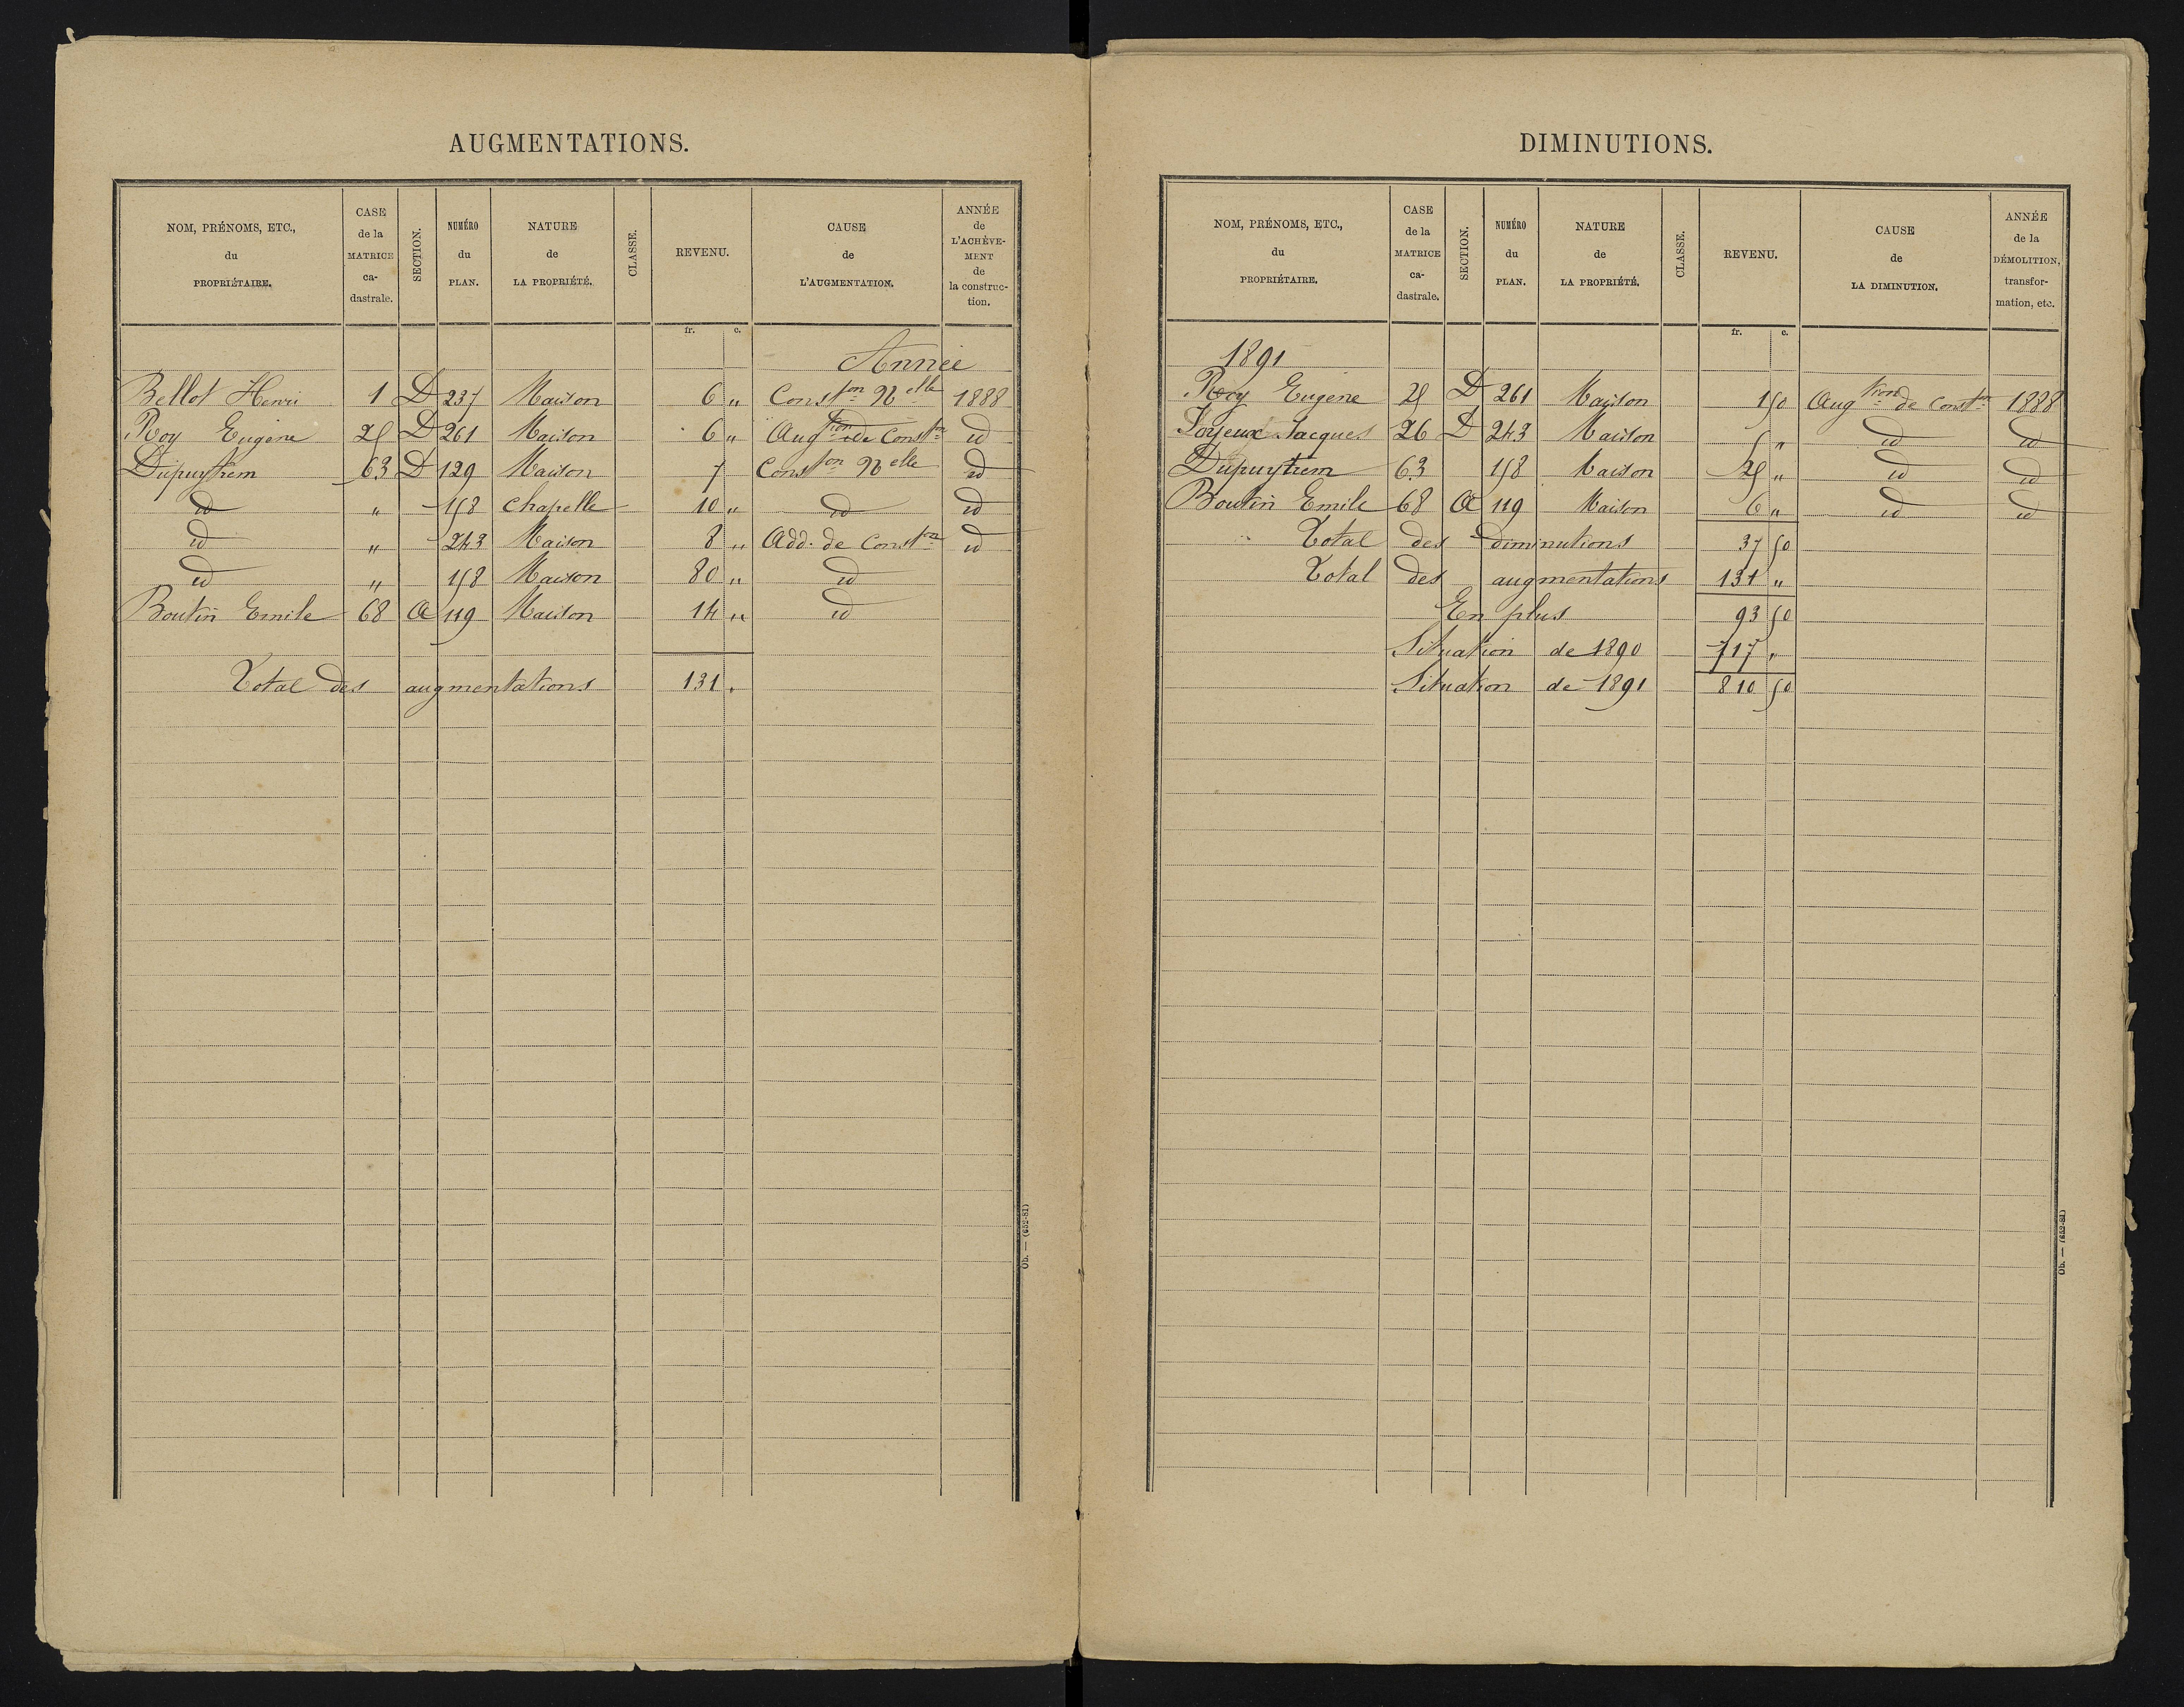 AUGMENTATIONS.
NOM, PRÉNOMS, ETC., du PROPRIÉTAIRE.
CASE de la MATRICE ca-dastrale.
SECTION.
NUMÉRO du PLAN.
NATURE de LA PROPRIÉTÉ.
CLASSE.
REVENU.
CAUSE de L'AUGMENTATION.
ANNÉE de L'ACHÈVE-MENT de la construc-tion.
fr. c.
Année
Bellot Henri 1 D 237 Maison 6 " Const on Nelle 1888
Roy Eugène 25 D 261 Maison 6 " Augtion de Conston id
Dupuytrem 63 D 129 Maison 7 Conston Nelle id
id " 158 Chapelle 10 " id id
id " 243 Maison 8 " Add. de Conston id
id " 158 Maison 80 " id
Boutin Emile 68 A 119 Maison 14 " id
Total des augmentations 131 "
Ob. — (652-81)
DIMINUTIONS.
NOM, PRÉNOMS, ETC., du PROPRIÉTAIRE.
CASE de la MATRICE ca-dastrale.
SECTION.
NUMÉRO du PLAN.
NATURE de LA PROPRIÉTÉ.
CLASSE.
REVENU.
CAUSE de LA DIMINUTION.
ANNÉE de la DÉMOLITION, transfor-mation, etc.
fr. c.
1891
Roy Eugène 25 D 261 Maison 1 50 Augtion de Conston 1888
Joyeux Jacques 26 D 243 Maison 5 " id id
Dupuytrem 63 158 Maison 25 " id id
Boutin Emile 68 A 119 Maison 6 " id id
Total des diminutions 37 50
Total des augmentations 131 "
En plus 93 50
Situation de 1890 717 "
Situation de 1891 810 50
Ob. — (652-81)